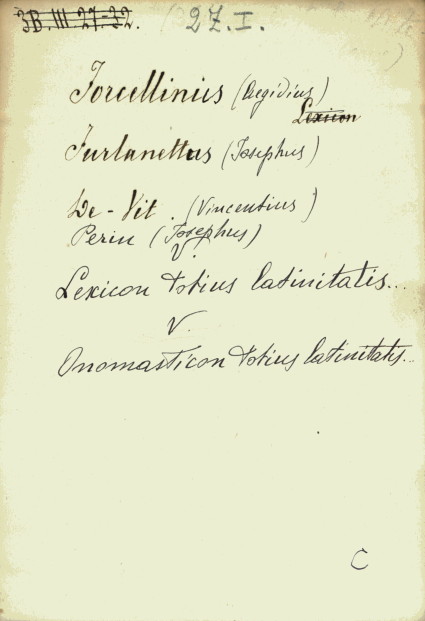 3B. III 27-32. 27.I.
Forcellinius (Aegidius)
Lexicon
Furlanettus (Josephus)
De-Vit. (Vincentius)
Perin (Josephus)
V.
Lexicon totius latinitatis...
V.
Onomasticon totius latinitatis...
C